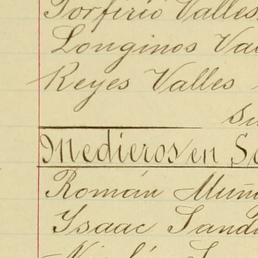 Porfirio Valles
Longinos Va
Reyes Valles
Su
Medieros en S
Román Muñ
Isaac Sand
Nicolás